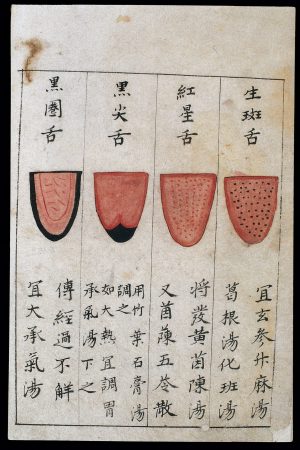 生斑舌
宜玄參升麻湯
葛根湯化班湯
紅星舌
將發黃茵陳湯
又茵蔯五苓散
黑尖舌
用竹葉石膏湯
調之
如大熱宜調胃
承氣湯下之
黑圈舌
傳經過不解
宜大承氣湯